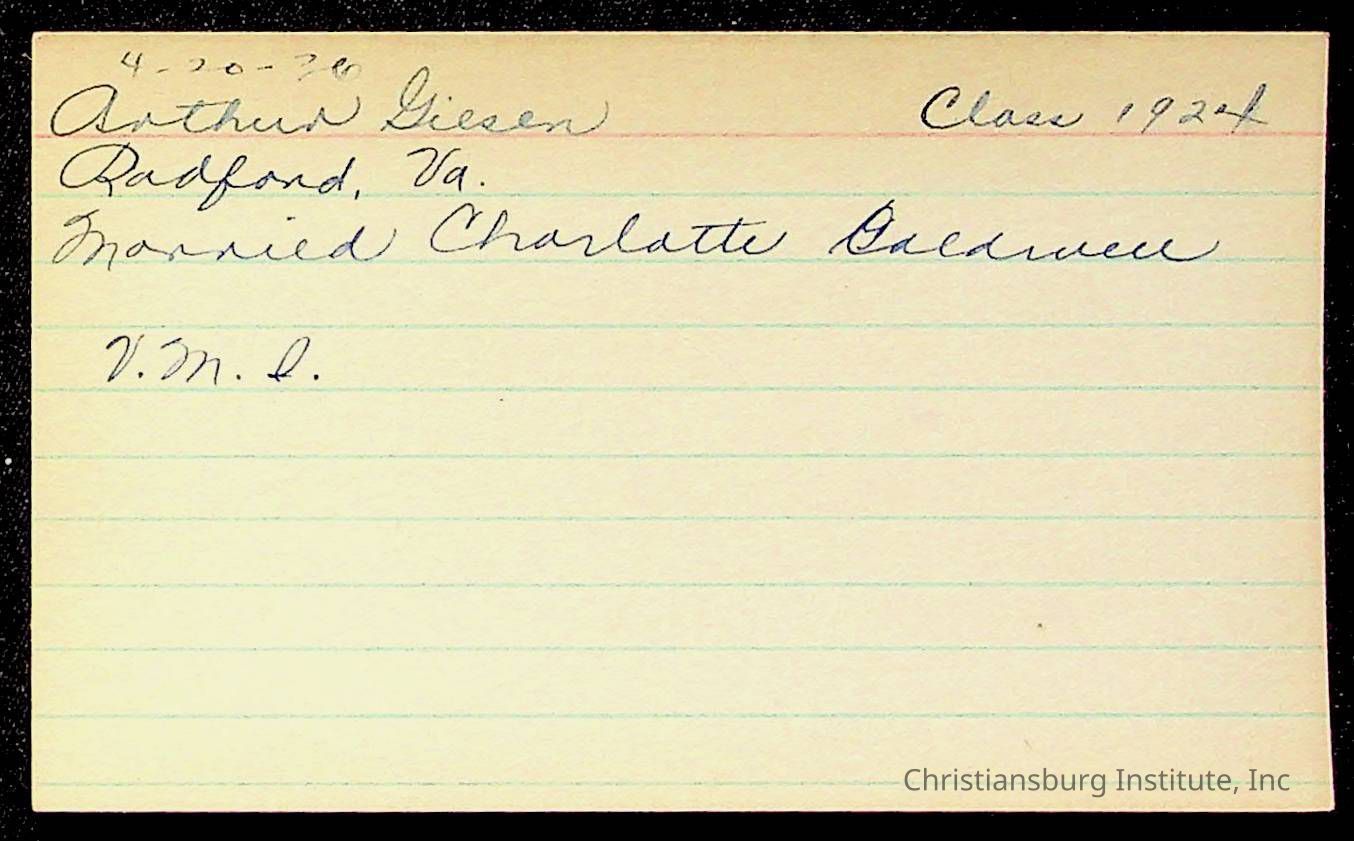 4-20-36
Arthur Giesen Class 1924
Radford, Va.
Married Charlotte
V.M.I.
Christiansburg Institute, Inc